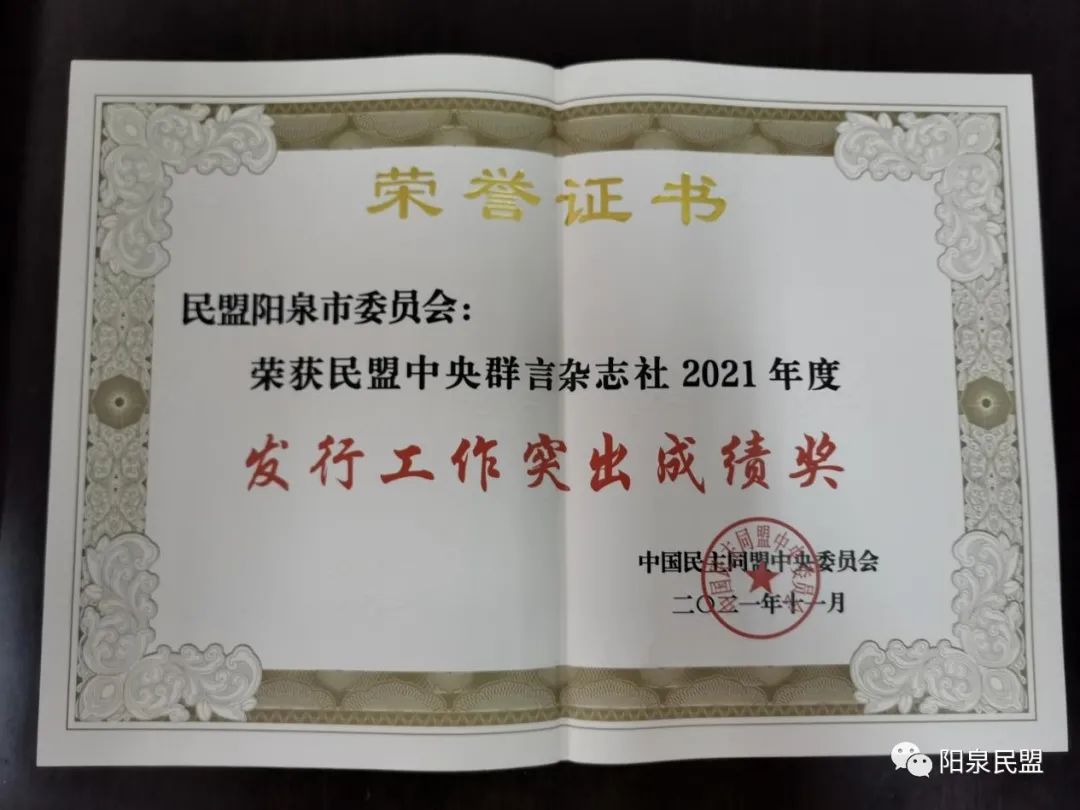 荣誉证书
民盟阳泉市委员会：
荣获民盟中央群言杂志社 2021 年度
发行工作突出成绩奖
中国民主同盟中央委员会
二〇二一年十一月
中国民主同盟中央委员会
阳泉民盟